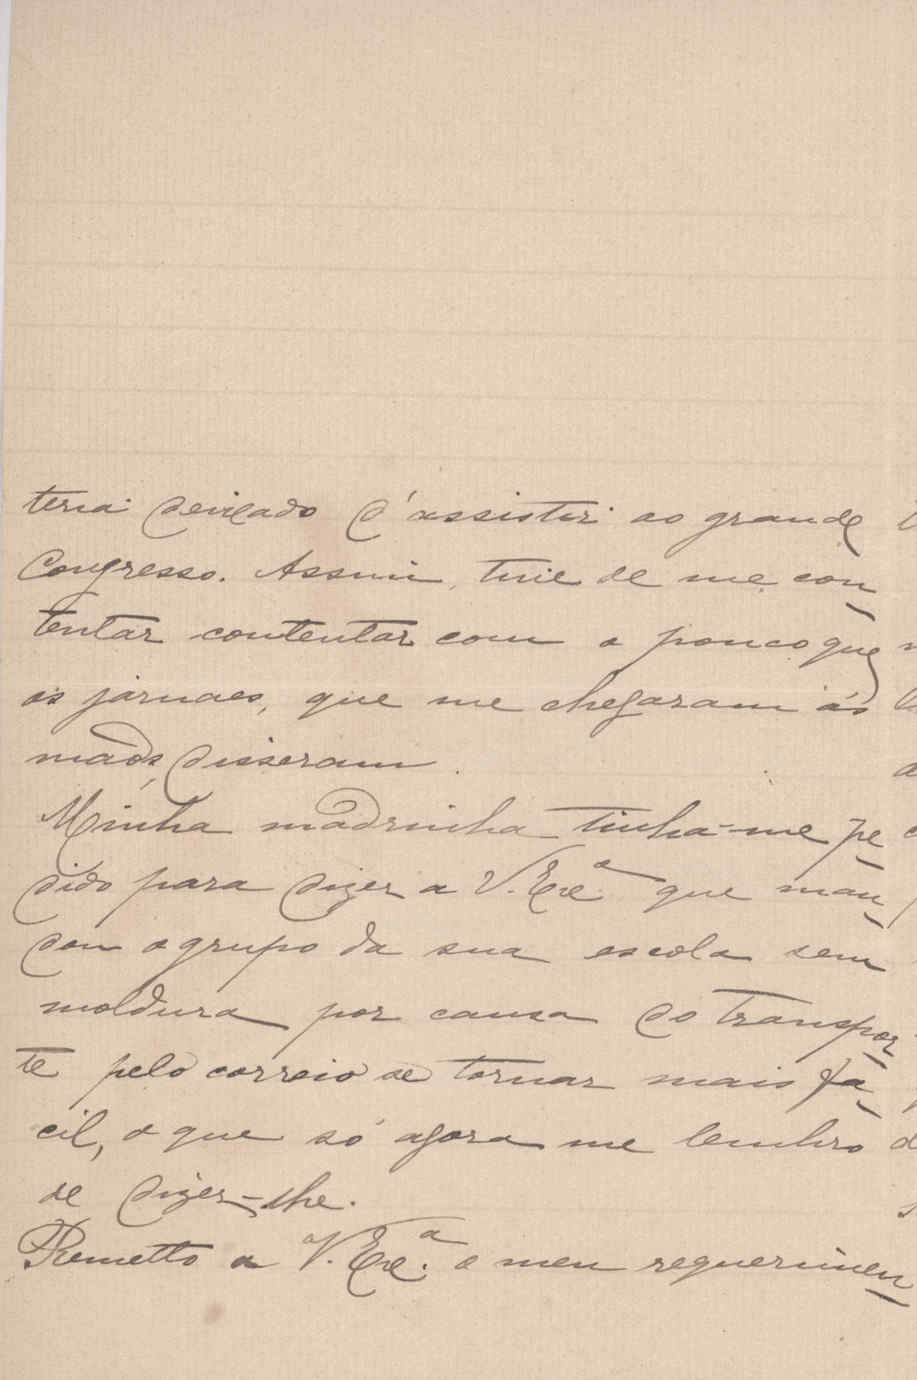 teria deixado d'assistir ao grande
Congresso. Assim, tive de me con-
tentar contentar com o pouco que
os jornaes, que me chegaram ás
mãos, disseram.
Minha madrinha tinha-me pe-
dido para dizer a V. Exc.ª que man-
dou o grupo da sua escola sem
moldura por causa do transpor-
te pelo correio se tornar mais fa-
cil, o que só agora me lembro
de dizer-lhe.
Remetto a V. Exc.ª o meu requerimen-